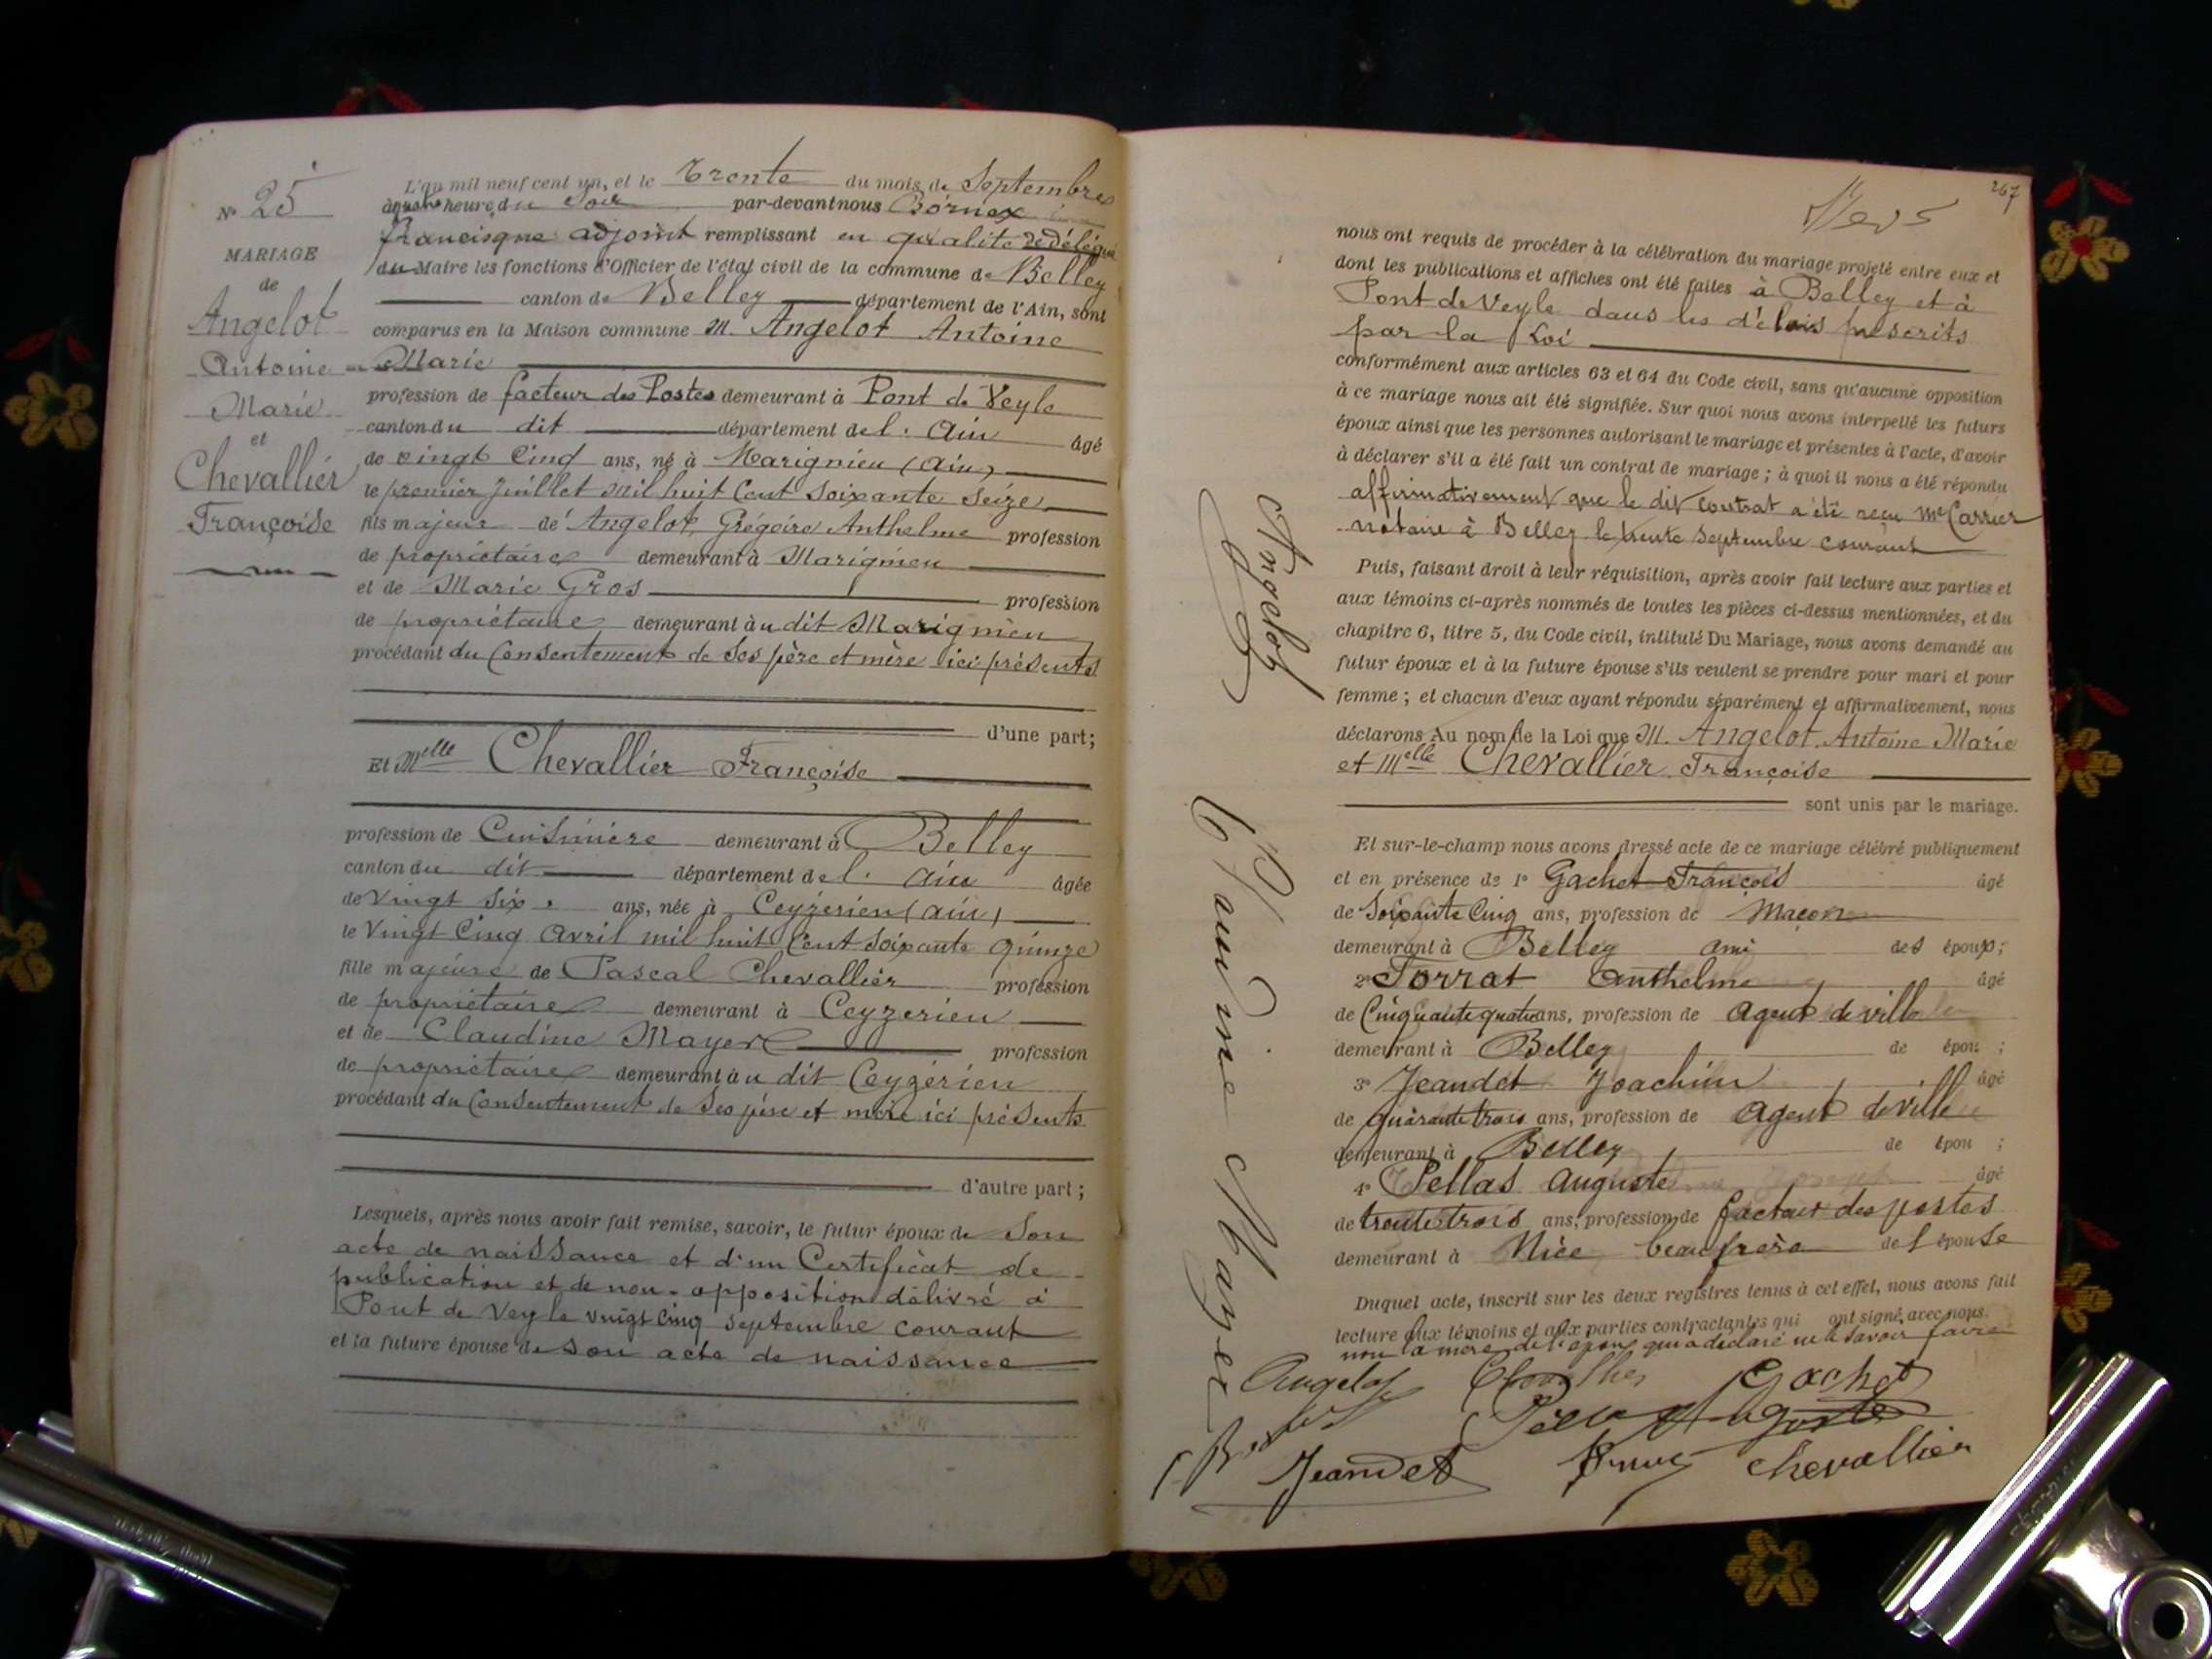 N° 25
MARIAGE
de
Angelot
Antoine
Marie
et
Chevallier
Françoise
L'an mil neuf cent un, et le trente du mois de Septembre
heure du Soir par-devant nous Bornex
francisque adjoint remplissant en qualité de délégué
du Maire les fonctions d'Officier de l'état civil de la commune de Belley
canton de Belley département de l'Ain, sont
comparus en la Maison commune M. Angelot Antoine
Marie
profession de facteur des Postes demeurant à Pont de Veyle
canton du dit département de l'Ain âgé
de vingt Cinq ans, né à Marignieu (Ain)
le premier Juillet mil huit Cent soixante seize
fils majeur de Angelot, Grégoire Anthelme profession
de propriétaire demeurant à Marignieu
et de Marie Gros profession
de propriétaire demeurant au dit Marignieu
procédant du Consentement de Ses père et mère ici présents
d'une part;
Et Melle Chevallier Françoise
profession de Cuisinière demeurant à Belley
canton du dit département de l'Ain âgée
de Vingt Six ans, née à Ceyzerieu (Ain)
le Vingt Cinq Avril mil huit Cent soixante quinze
fille majeure de Pascal Chevallier profession
de propriétaire demeurant à Ceyzerieu
et de Claudine Mayer profession
de propriétaire demeurant au dit Ceyzérieu
procédant du Consentement de Ses père et mère ici présents
d'autre part;
Lesquels, après nous avoir fait remise, savoir, le futur époux de Son
acte de naissance et d'un Certificat de
publication et de non-opposition délivré à
Pont de Veyle vingt Cinq Septembre courant
et la future épouse de son acte de naissance
267
nous ont requis de procéder à la célébration du mariage projeté entre eux et
dont les publications et affiches ont été faites à Belley et à
Pont de Veyle dans les délais prescrits
par la Loi
conformément aux articles 63 et 64 du Code civil, sans qu'aucune opposition
à ce mariage nous ait été signifiée. Sur quoi nous avons interpellé les futurs
époux ainsi que les personnes autorisant le mariage et présentes à l'acte, d'avoir
à déclarer s'il a été fait un contrat de mariage; à quoi il nous a été répondu
affirmativement que le dit contrat a été reçu Me Carrier
notaire à Belley le trente Septembre courant
Puis, faisant droit à leur réquisition, après avoir fait lecture aux parties et
aux témoins ci-après nommés de toutes les pièces ci-dessus mentionnées, et du
chapitre 6, titre 5, du Code civil, intitulé Du Mariage, nous avons demandé au
futur époux et à la future épouse s'ils veulent se prendre pour mari et pour
femme; et chacun d'eux ayant répondu séparément et affirmativement, nous
déclarons Au nom de la Loi que M. Angelot Antoine Marie
et Melle Chevallier Françoise
sont unis par le mariage.
Et sur-le-champ nous avons dressé acte de ce mariage célébré publiquement
et en présence de 1° Gachet François âgé
de Soixante Cinq ans, profession de Maçon
demeurant à Belley ami des époux;
2° Torrat Anthelme âgé
de Cinquante quatre ans, profession de Agent de ville
demeurant à Belley de épou ;
3° Jeandet Joachim âgé
de quarante trois ans, profession de Agent de ville
demeurant à Belley de épou ;
4° Pellas Auguste âgé
de trente trois ans, profession de facteur des postes
demeurant à Nice beau frère de l'épouse
Duquel acte, inscrit sur les deux registres tenus à cet effet, nous avons fait
lecture aux témoins et aux parties contractantes qui ont signé avec nous.
non la mère de l'époux qui a déclaré ne le savoir faire
Angelot
Claudine Mayer
Angelot Gachet
Jeandet Chevallier